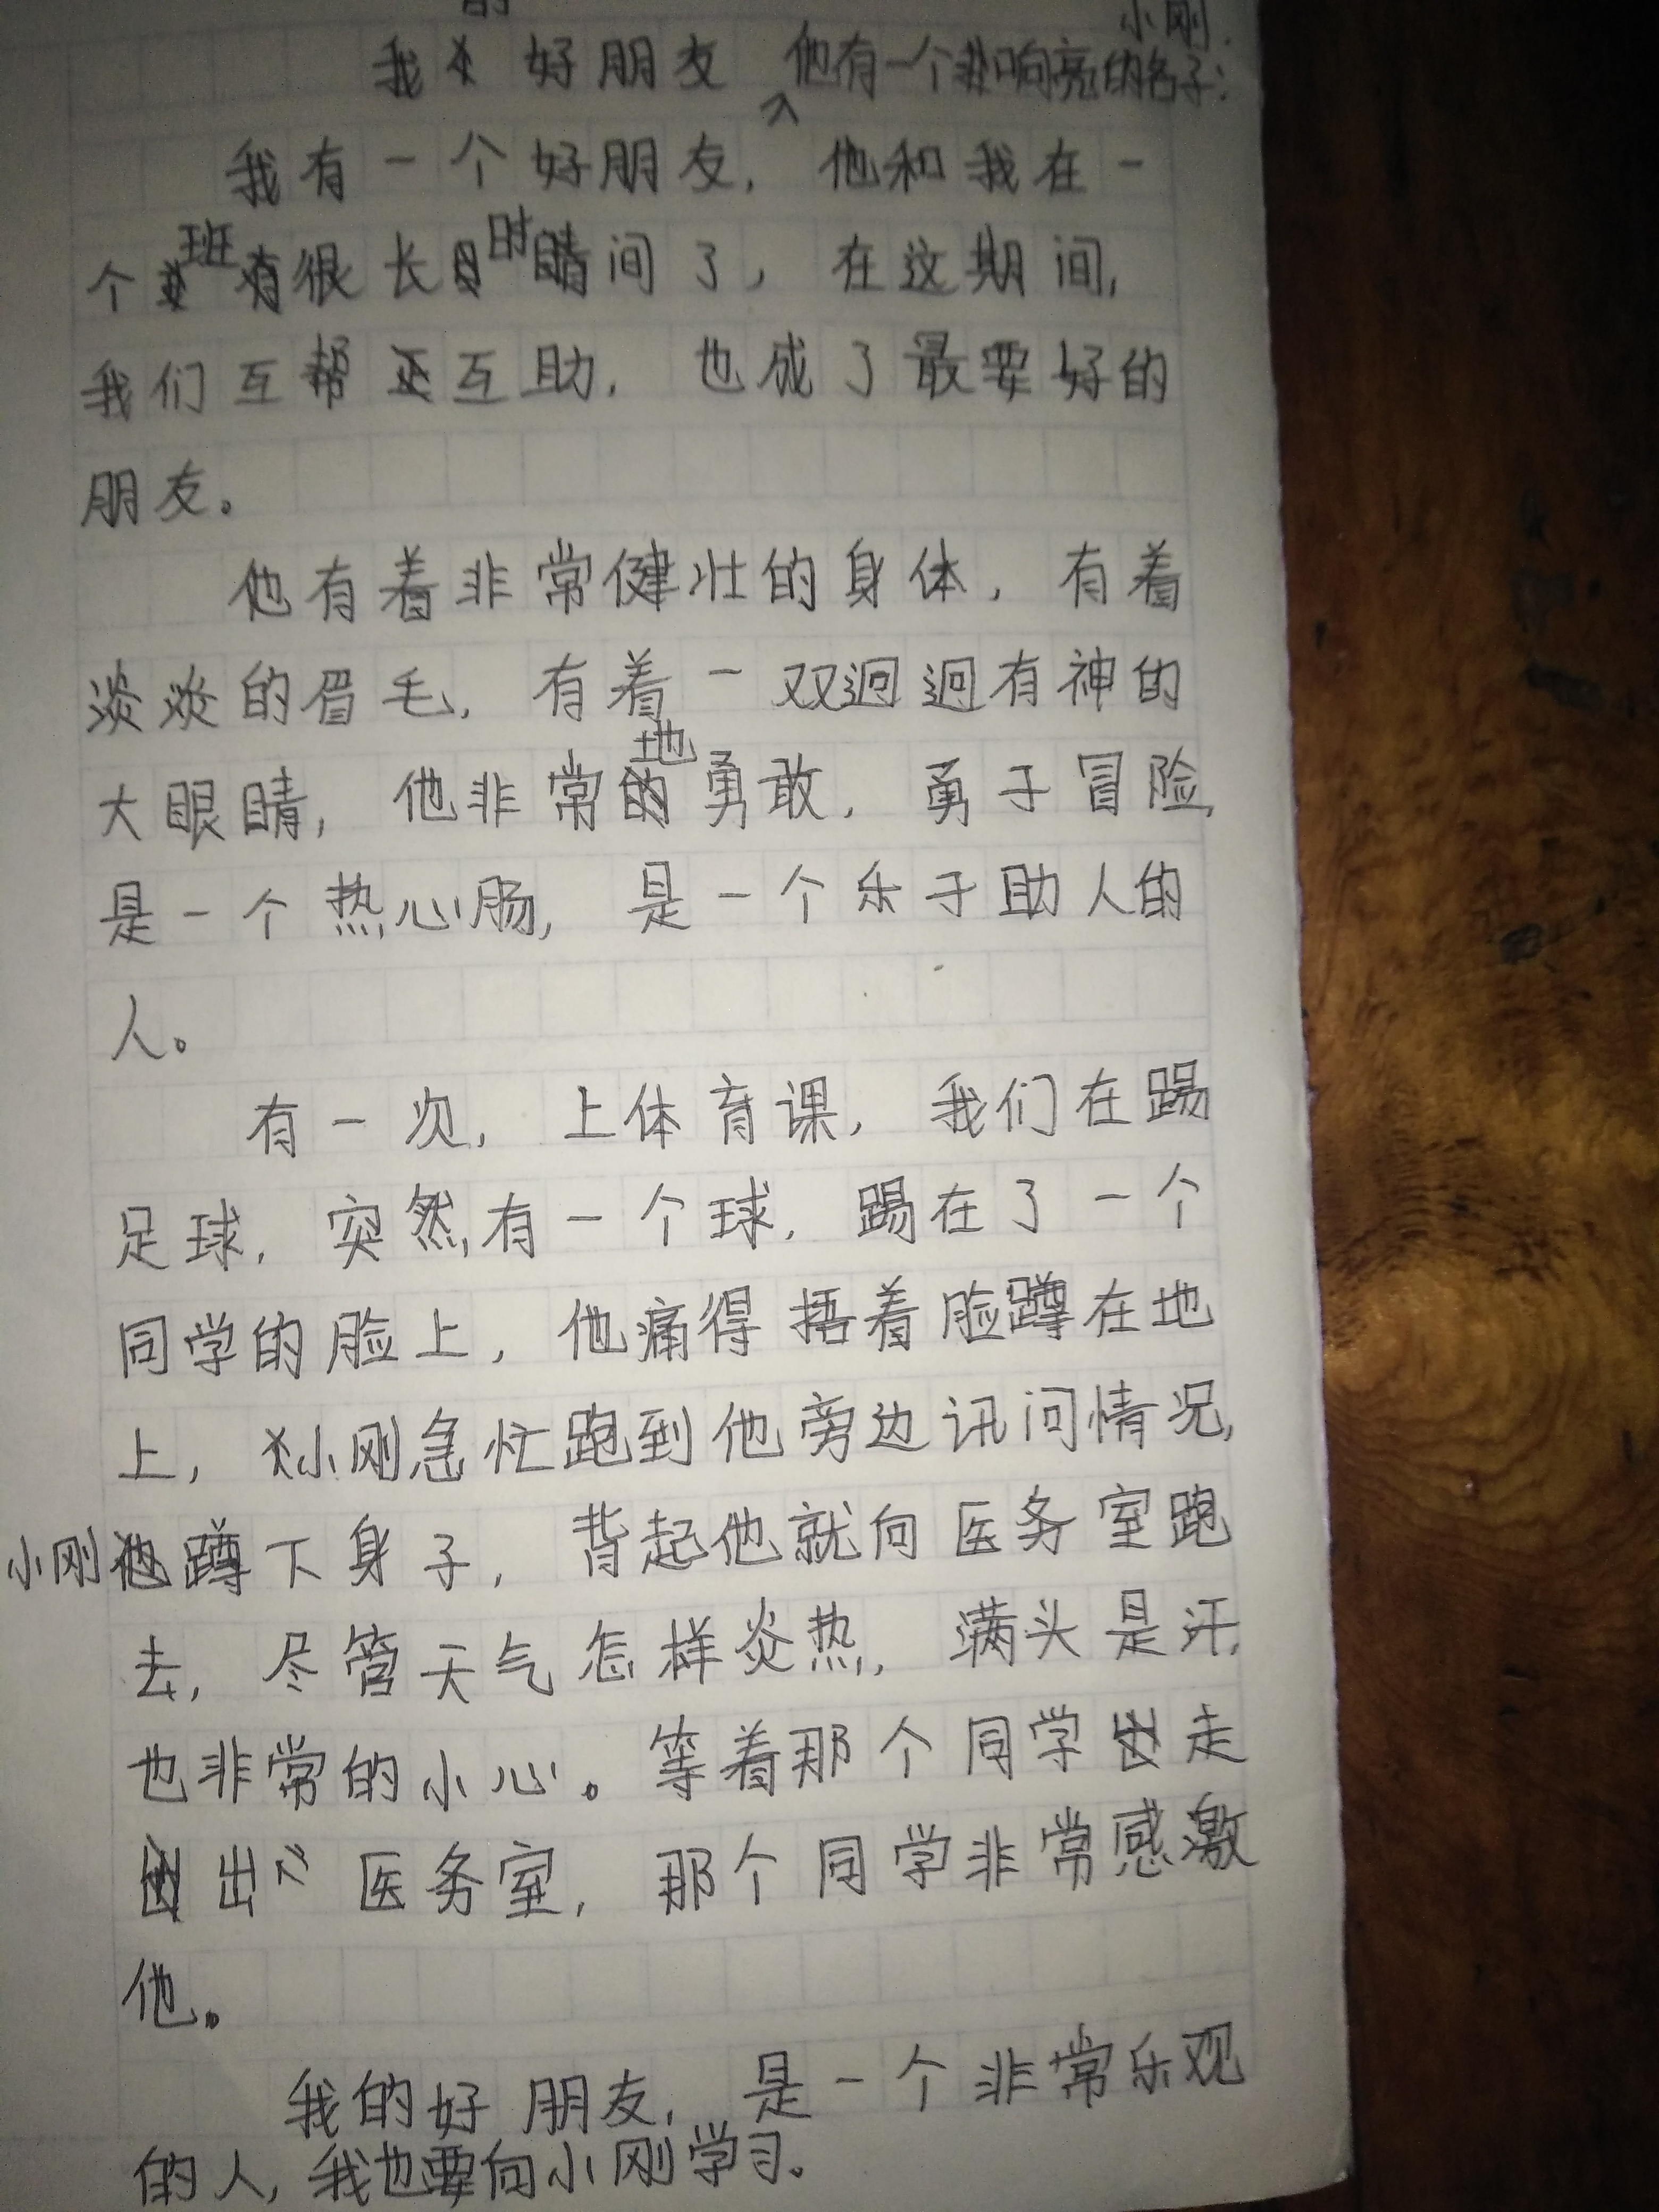 的
小刚.
我 好朋友
他有一个响亮的名子:
我有一个好朋友，他和我在一
个班很长时间了，在这期间，
我们互帮互助，也成了最要好的
朋友。
他有着非常健壮的身体，有着
淡淡的眉毛，有着一双迥迥有神的
地
大眼睛，他非常勇敢，勇于冒险，
是一个热心肠，是一个乐于助人的
人。
有一次，上体育课，我们在踢
足球，突然，有一个球，踢在了一个
同学的脸上，他痛得捂着脸蹲在地
上，小刚急忙跑到他旁边讯问情况，
小刚蹲下身子，背起他就向医务室跑
去，尽管天气怎样炎热，满头是汗，
也非常的小心。等着那个同学走
出医务室，那个同学非常感激
他。
我的好朋友，是一个非常乐观
的人，我也要向小刚学习。